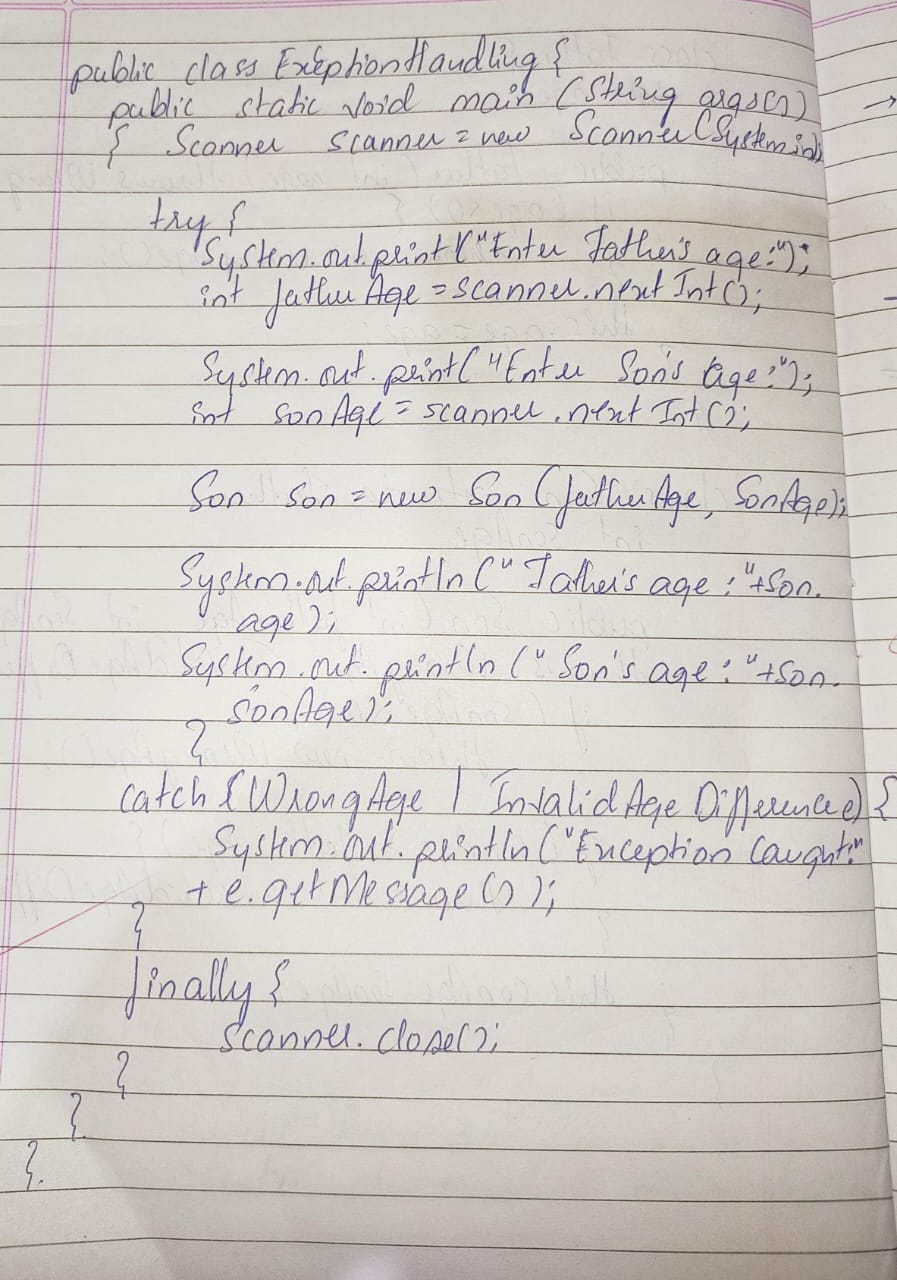 public class ExceptionHandling {
public static void main (String args[])
{ Scanner scanner = new Scanner(System.in);
try {
System.out.print("Enter Father's age:");
int fatherAge = scanner.nextInt();
System.out.print("Enter Son's age:");
int sonAge = scanner.nextInt();
Son son = new Son (fatherAge, SonAge);
System.out.println(" Father's age :"+Son.
age);
System.out.println (" Son's age : "+Son.
sonAge);
}
catch (WrongAge | InvalidAgeDifference e) {
System.out.println("Exception Caught:"
+ e.getMessage());
}
finally {
Scanner.close();
}
}
}.